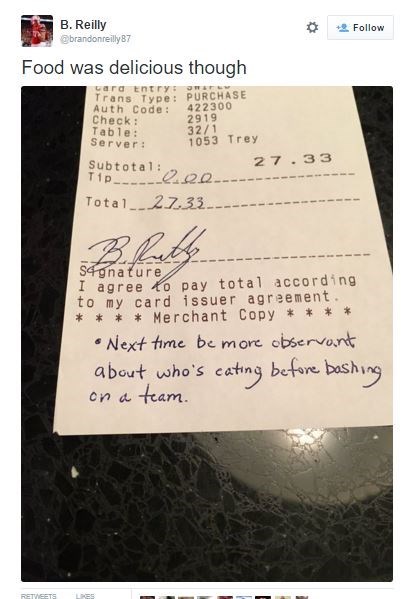 B. Reilly
@brandonreilly87
Follow
Food was delicious though
Card Entry:
Trans Type: PURCHASE
Auth Code: 422300
Check: 2919
Table: 32/1
Server: 1053 Trey
Subtotal: 27.33
Tip 0.00
Total 27.33
B. Reilly
Signature
I agree to pay total according
to my card issuer agreement.
* * * * Merchant Copy * * * *
• Next time be more observant
about who's eating before bashing
on a team.
RETWEETS LIKES